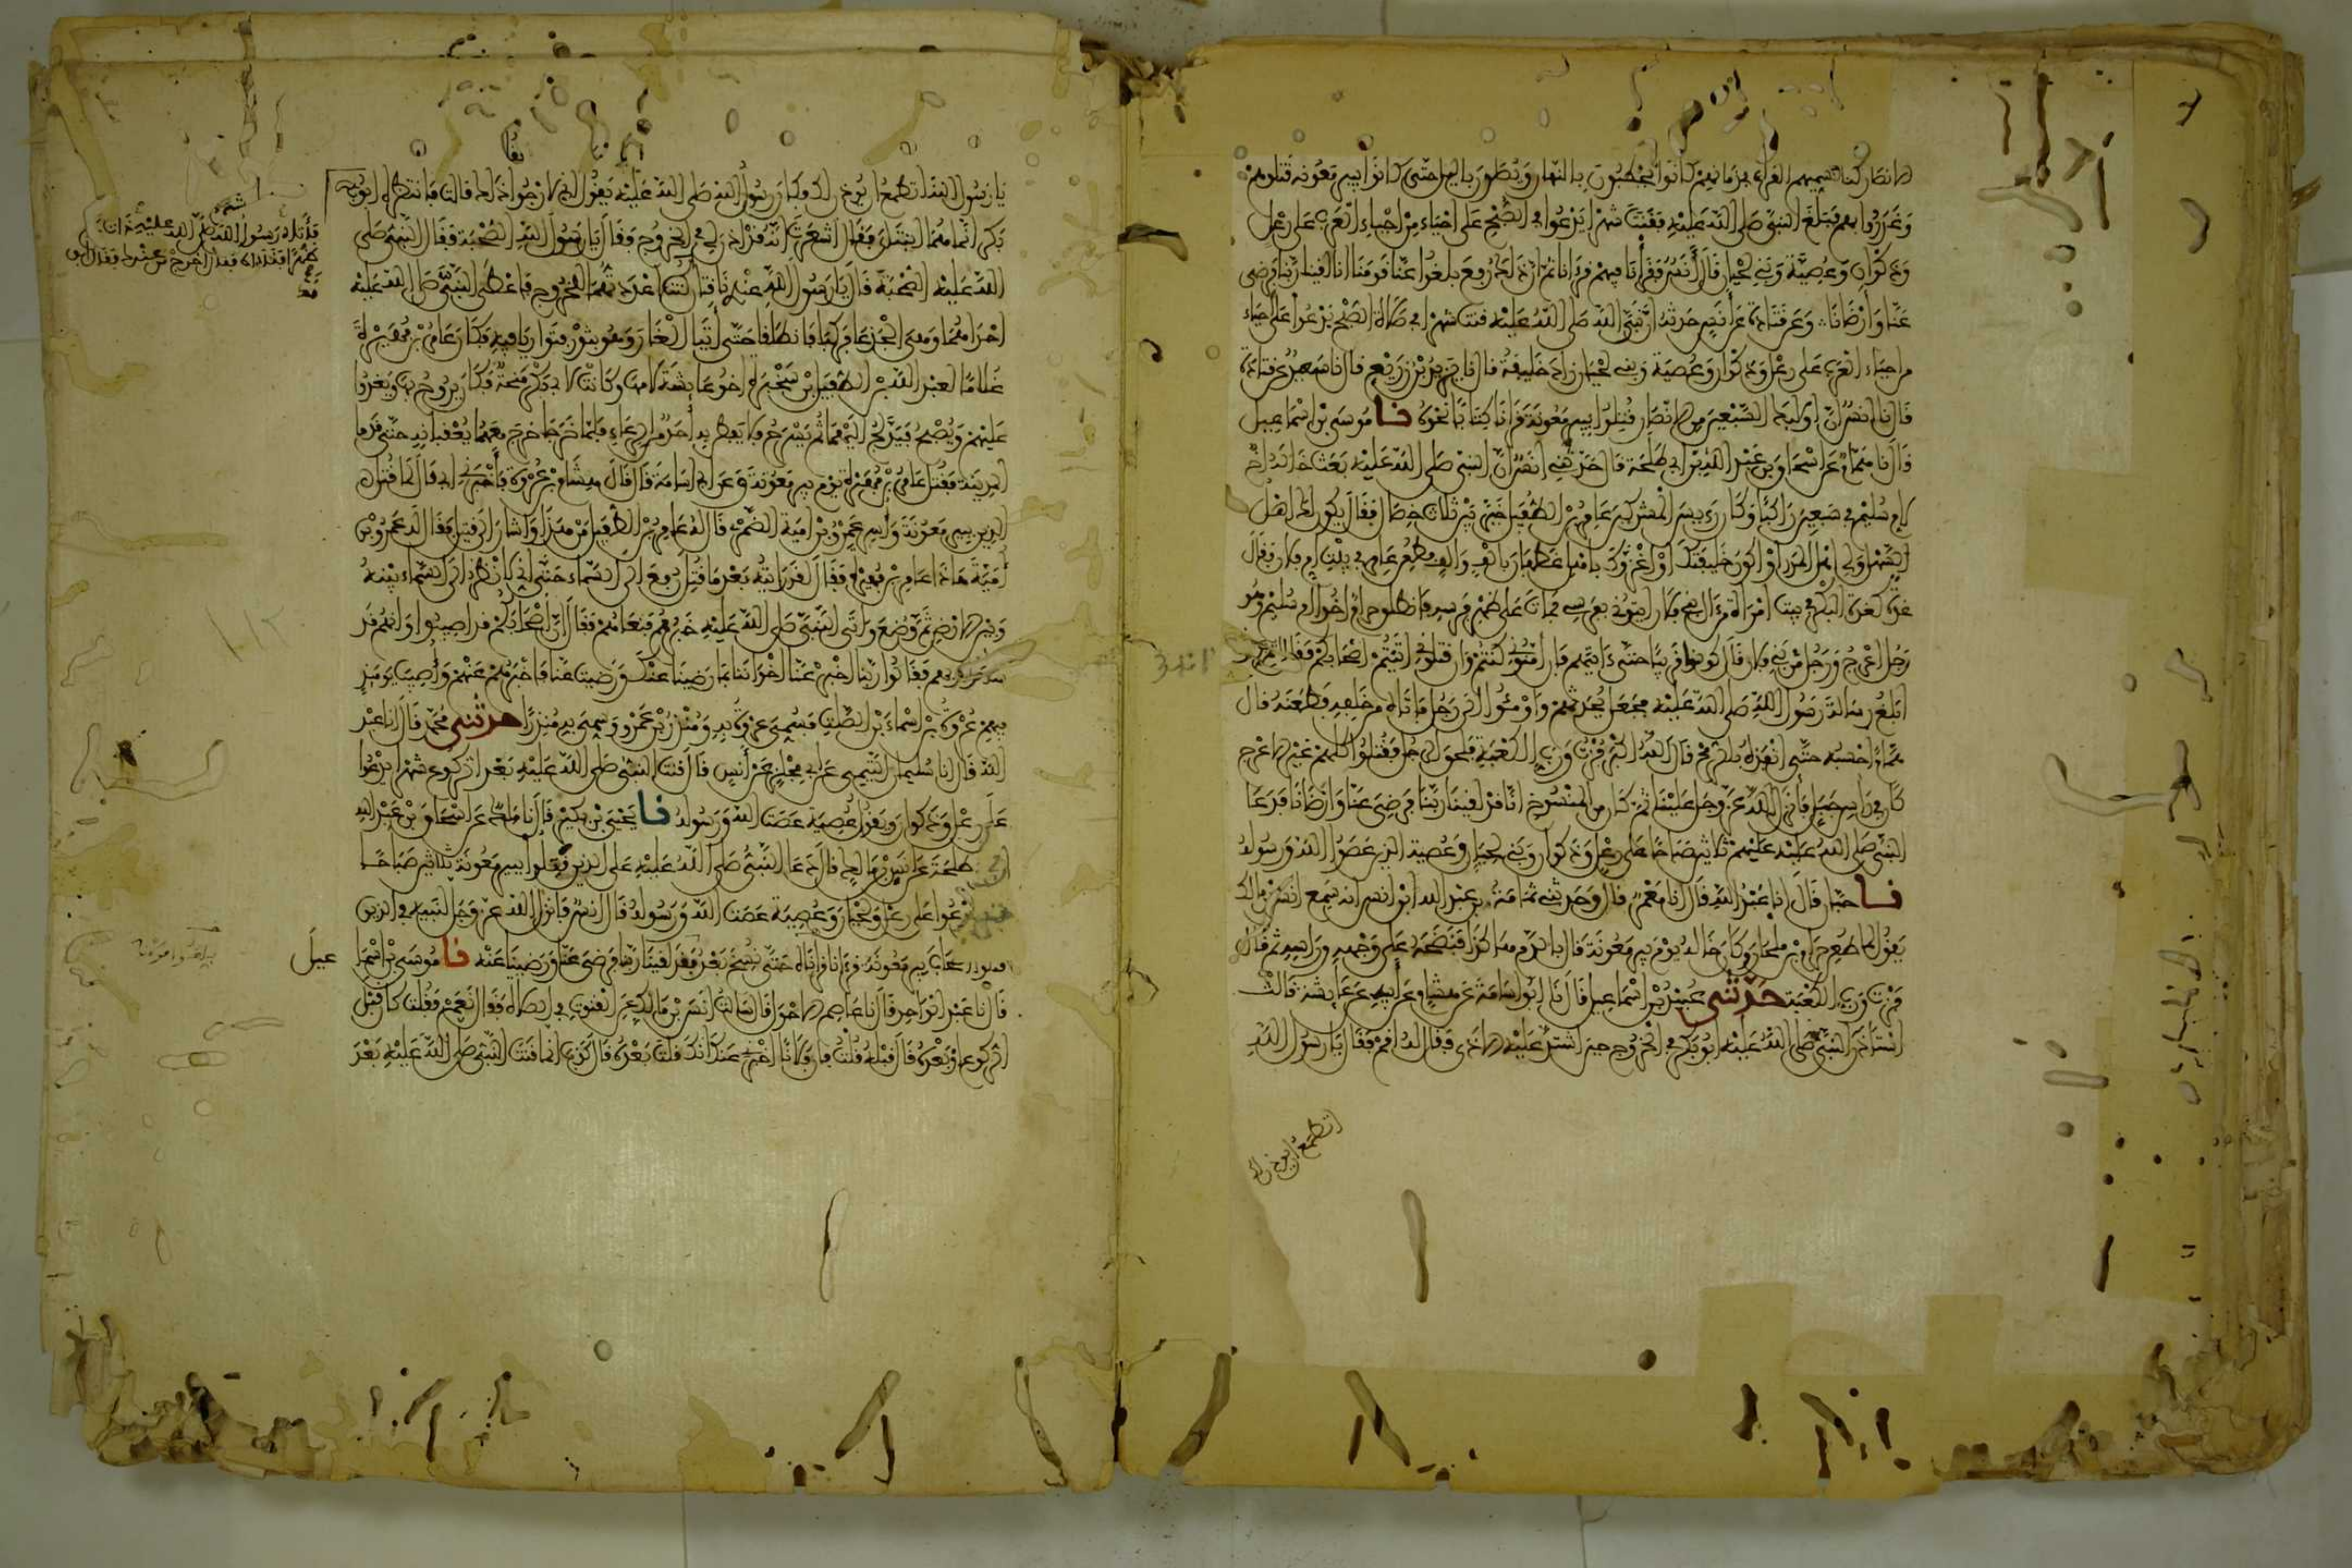 الانصار كنا نسميهم القراء في زمانهم كانوا يحطبون بالنهار ويصلون باليل حتى كانوا ببير معونة قتلوهم
وغدروا بهم فبلغ النبي صلى الله عليه فقنت شهرا يدعوا في الصبح على احياء من احياء العرب على رعل
وذكوان وعصية وبني لحيان قال أنس فقرأنا فيهم قرءانا ثم ان ذلك رفع بلغوا عنا قومنا انا لقينا ربنا فرضى
عنا وأرضانا وعن قتادة عن أنس حدثه أن نبي الله صلى الله عليه قنت شهرا في صلاة الصبح يدعوا على احياء
من احياء العرب على رعل وذكوان وعصية وبني لحيان زاد خليفة قال نا يزيد بن زريع قال نا سعيد عن قتادة
قال نا انس أن اوليك السبعين من الانصار قتلوا ببير معونة قرءانا كتابا نحوه نا موسى بن اسماعيل
قال نا همام عن اسحاق بن عبد الله بن ابي طلحة قال حدثني انس أن النبي صلى الله عليه بعث خاله اخ
لام سليم في سبعين راكبا وكان رييس المشركين عامر بن الطفيل خير بين ثلاث خصال فقال يكون لك اهل
السهل ولي اهل المدر او اكون خليفتك او اغزوك باهل غطفان بالف والف فطعن عامر في بيت ام فلان فقال
غدة كغدة البكر في بيت امرأة من ال بني فلان ايتوني بفرسي فمات على ظهر فرسه فانطلق حرام اخوا ام سليم وهو
رجل اعرج ورجل من بني فلان قال كونوا قريبا حتى ءاتيهم فان أمنوني كنتم وان قتلوني اتيتم اصحابكم فقال اتومنوني
ابلغ رسالة رسول الله صلى الله عليه فجعل يحدثهم واومئوا الى رجل فاتاه من خلفه فطعنه قال
همام احسبه حتى انفذه بالرمح قال الله اكبر فزت ورب الكعبة فلحق الرجل فقتلوا كلهم غير الاعرج
كان في راس جبل فأنزل الله عز وجل علينا ثم كان من المنسوخ انا قد لقينا ربنا فرضي عنا وارضانا فدعا
النبي صلى الله عليه عليهم ثلاثين صباحا على رعل وذكوان وبني لحيان وعصية الذين عصوا الله ورسوله
نا حبان قال انا عبد الله قال انا معمر قال وحدثني ثمامة بن عبد الله ابن أنس انه سمع انس بن مالك
يقول لما طعن حرام بن ملحان وكان خاله يوم بير معونة قال بالدم هاكذا فنضحه على وجهه وراسه ثم قال
فزت ورب الكعبة حدثني عبيد بن اسماعيل قال نا ابوا اسامة عن هشام عن أبيه عن عايشة قالت
استاذن النبي صلى الله عليه ابو بكر في الخروج حين اشتد عليه الاذى فقال له اقم فقال يا رسول الله
اتطمع ان يوذن لك
يا رسول الله اتطمع ان يوذن لك فكان رسول الله صلى الله عليه يقول إني لارجوا ذلك قالت فانتظره ابو
بكر انما هما ابنتاي فقال اشعرت انه قد اذن لي في الخروج وفقال يا رسول الله الصحبة فقال النبي صلى
الله عليه الصحبة قال يا رسول الله عندي ناقتان كنت اعددتهما للخروج فاعطى النبي صلى الله عليه
احداهما وهي الجدعا فركبا فانطلقا حتى أتيا الغار وهو بثور فتواريا فيه فكان عامر بن فهيرة
غلاما لعبد الله بن الطفيل بن سخبرة اخو عايشة لامها وكانت لابي بكر منحة فكان يروح بها ويغدوا
عليهم ويصبح فيدلج اليهما ثم يسرح فلا يفطن به أحد من الرعاء فلما خرجا خرج معهما يعقبانه حتى قدما
المدينة فقتل عامر بن فهيرة يوم بير معونة وعن ابي اسامة قال قال هشام بن عروة فأخبرني ابي قال لما قتل
الذين ببير معونة واسر عمرو بن امية الضمري قال له عامر بن الطفيل من هذا واشار الى قتيل فقال له عمرو بن
أمية هاذا عامر بن فهيرة فقال لقد رايته بعد ما قتل رفع الى السماء حتى اني لانظر الى السماء بينه
وبين الارض ثم وضع فاتى النبي صلى الله عليه خبرهم فنعاهم فقال ان اصحابكم قد اصيبوا وانهم قد
سألوا ربهم فقالوا ربنا اخبر عنا اخواننا بما رضينا عنك ورضيت عنا فأخبرهم عنهم وأصيب يوميذ
فيهم عروة بن اسماء بن الصلت فسمي عروة به ومنذر بن عمرو وسمي به منذرا حدثني محمد قال انا عبد
الله قال انا سليمان التيمي عن ابي مجلز عن أنس قال قنت النبي صلى الله عليه بعد الركوع شهرا يدعوا
على رعل وذكوان ويقول عصية عصت الله ورسوله نا يحيى بن بكير قال نا مالك عن اسحاق بن عبد الله
بن ابي طلحة عن أنس بن مالك قال دعا النبي صلى الله عليه على الذين قتلوا ببير معونة ثلاثين صباحا
يدعوا على رعل ولحيان وعصية عصت الله ورسوله قال أنس فانزل الله عز وجل لنبيه في الذين
قتلوا اصحاب بير معونة قرءانا قرأناه حتى نسخ بعد بلغوا قومنا فقد لقينا ربنا فرضي عنا ورضينا عنه نا موسى بن اسما
عيل
قال نا عبد الواحد قال نا عاصم الاحول قال سالت انس بن مالك عن القنوت في الصلاة فقال نعم فقلت كان قبل
الركوع او بعده قال قبله قلت فان فلانا اخبرني عنك انك قلت بعده قال كذب انما قنت النبي صلى الله عليه بعد
فأتاه رسول الله صلى الله عليه ذات
ظهرا فناداه فقال اخرج من عندك فقال ابو